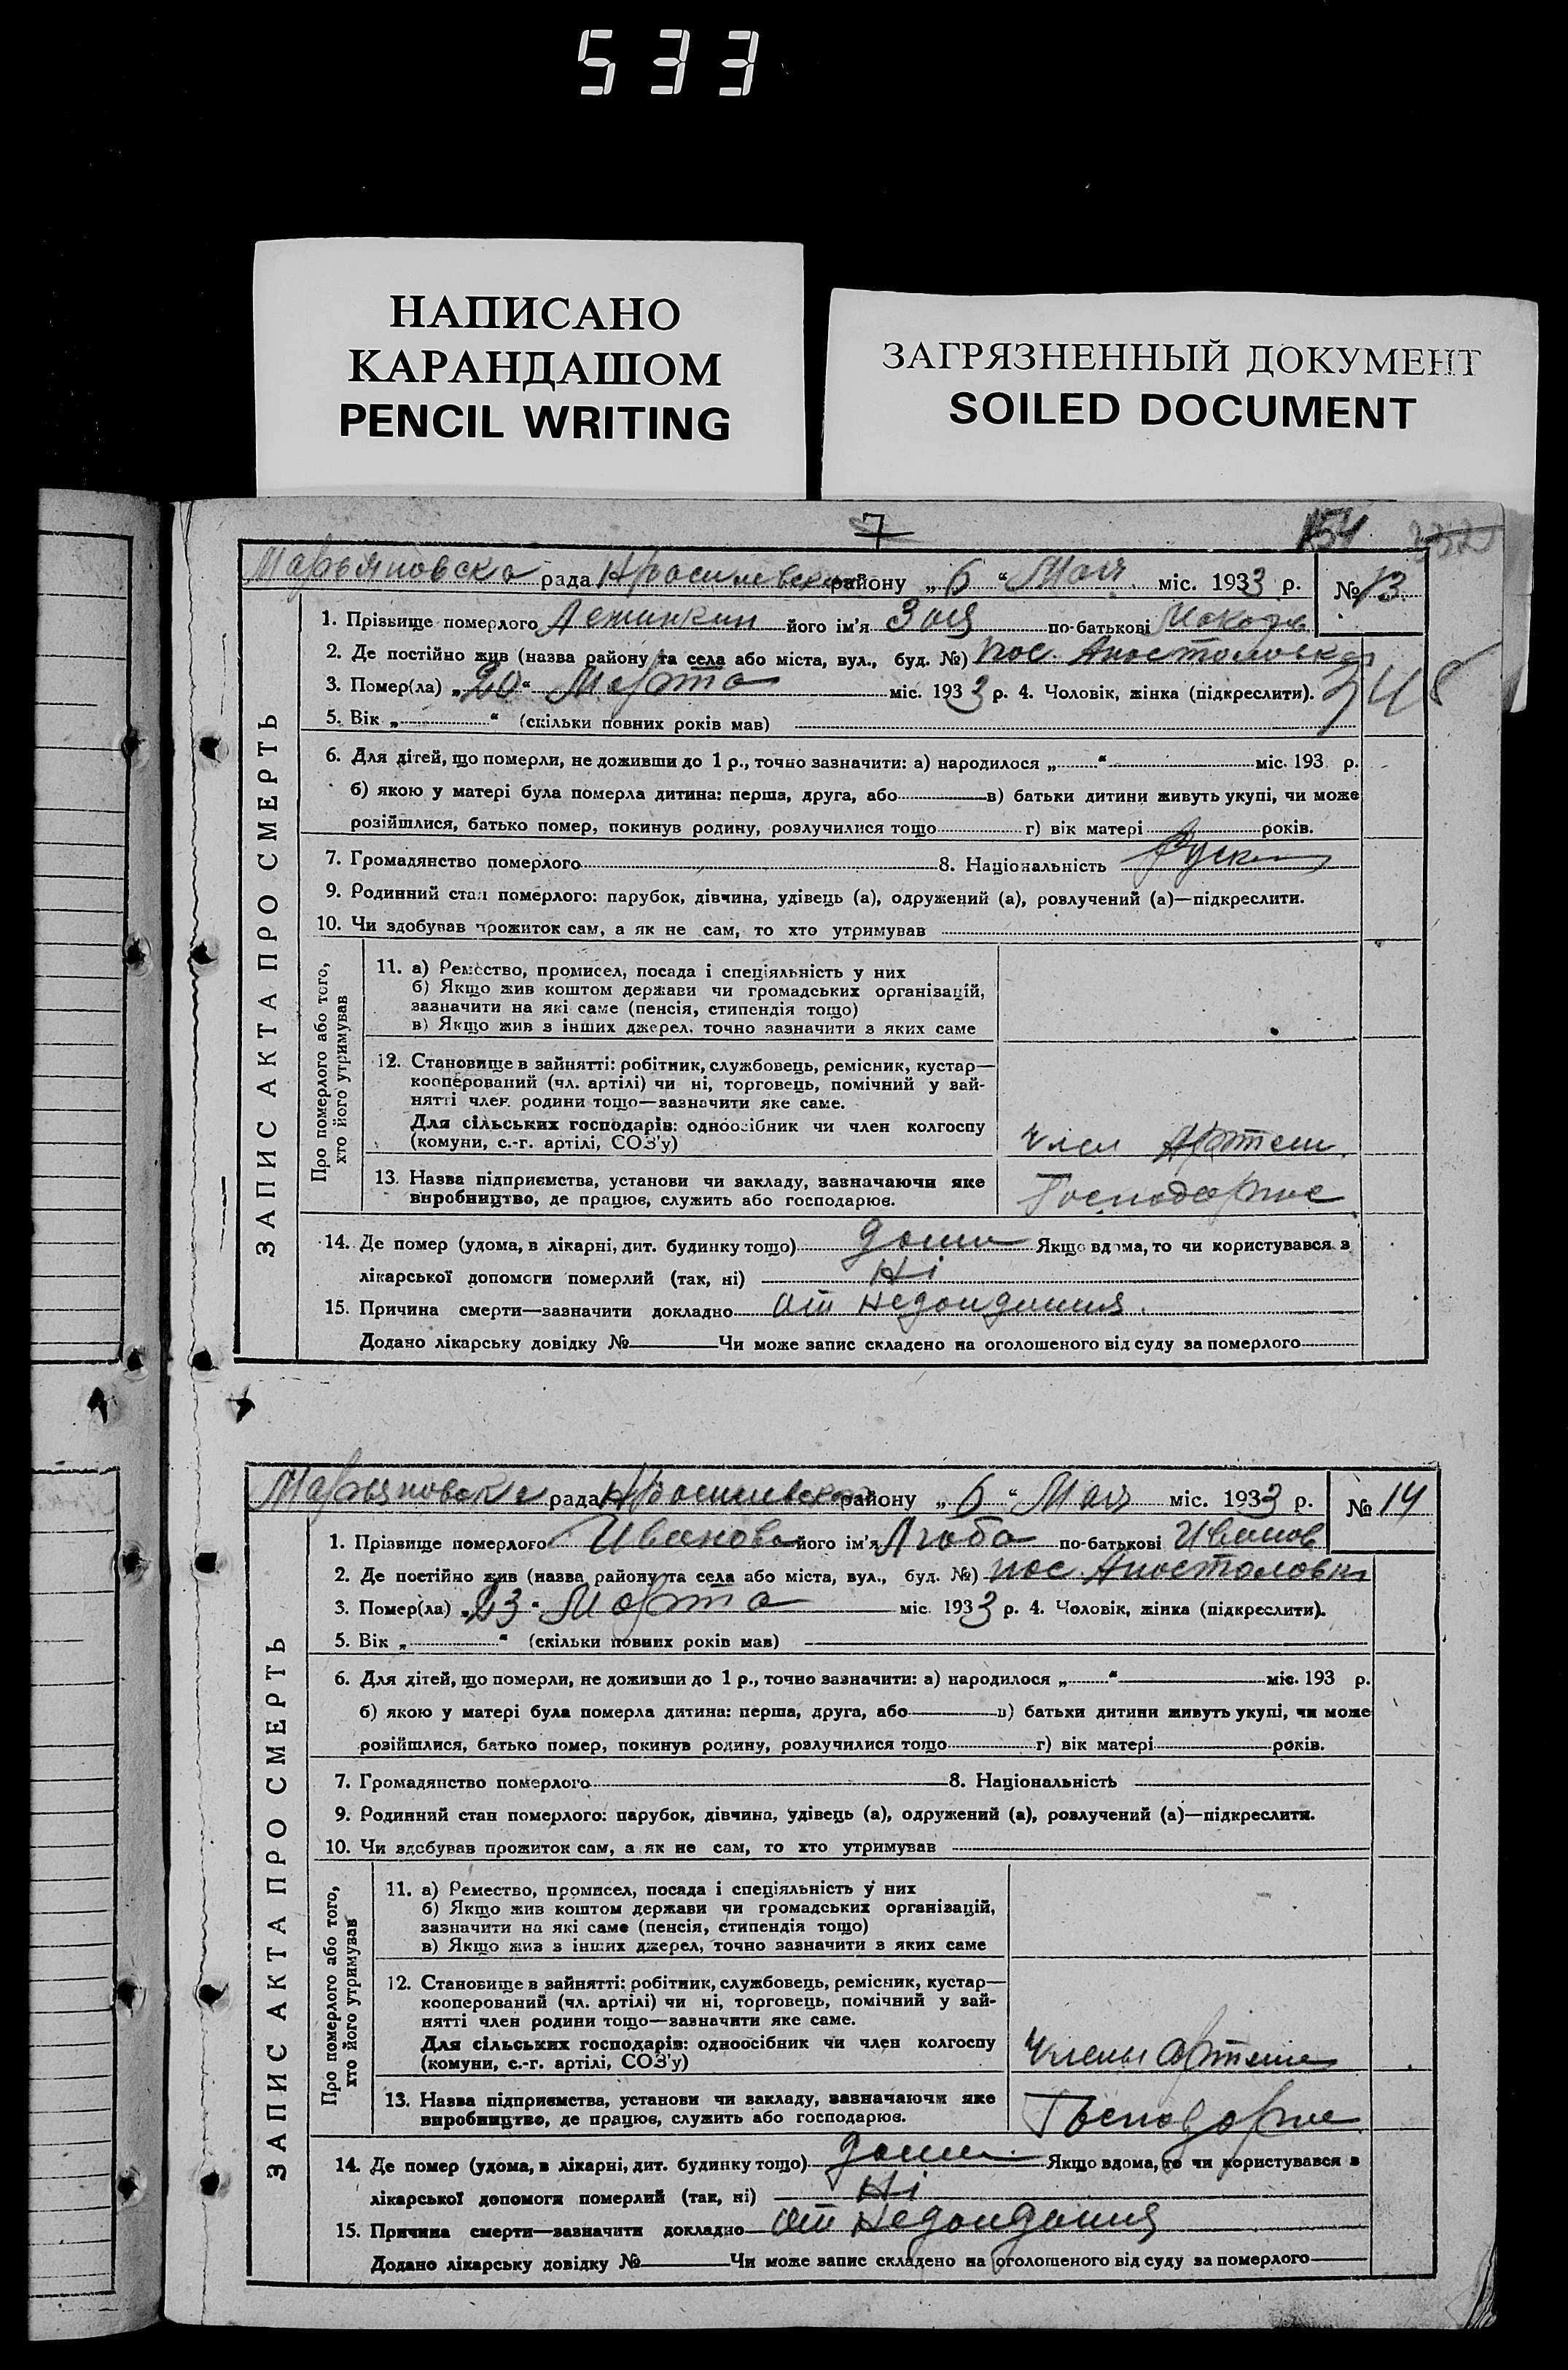 533
НАПИСАНО
КАРАНДАШОМ
PENCIL WRITING
ЗАГРЯЗНЕННЫЙ ДОКУМЕНТ
SOILED DOCUMENT
7
154
ЗАПИС АКТА ПРО СМЕРТЬ
Марьяновска рада району „ 6 “ Мая міс. 1933 р. № 13
1. Прізвище померлого його ім'я Зоя по-батькові
2. Де постійно жив (назва району та села або міста, вул., буд. №) пос. Апостоловка
3. Помер(ла) „ 20 “ Марта міс. 1933 р. 4. Чоловік, жінка (підкреслити).
348
5. Вік „ “ (скільки повних років мав)
6. Для дітей, що померли, не доживши до 1 р., точно зазначити: а) народилося „ “ міс. 193 р.
б) якою у матері була померла дитина: перша, друга, або в) батьки дитини живуть укупі, чи може
розійшлися, батько помер, покинув родину, розлучилися тощо г) вік матері років.
7. Громадянство померлого 8. Національність
9. Родинний стан померлого: парубок, дівчина, удівець (а), одружений (а), розлучений (а)—підкреслити.
10. Чи здобував прожиток сам, а як не сам, то хто утримував
Про померлого або того,
хто його утримував
11. а) Ремество, промисел, посада і спеціяльність у них
б) Якщо жив коштом держави чи громадських організацій,
зазначити на які саме (пенсія, стипендія тощо)
в) Якщо жив з інших джерел, точно зазначити з яких саме
12. Становище в зайнятті: робітник, службовець, ремісник, кустар—
кооперований (чл. артілі) чи ні, торговець, помічний у зай-
нятті член родини тощо—зазначити яке саме.
Для сільських господарів: одноосібник чи член колгоспу
(комуни, с.-г. артілі, СОЗ'у) член
13. Назва підприємства, установи чи закладу, зазначаючи яке
виробництво, де працює, служить або господарює.
14. Де помер (удома, в лікарні, дит. будинку тощо) дома Якщо вдома, то чи користувався з
лікарської допомоги померлий (так, ні) Ні
15. Причина смерти—зазначити докладно от недоидания
Додано лікарську довідку № Чи може запис складено на оголошеного від суду за померлого
ЗАПИС АКТА ПРО СМЕРТЬ
Марьяновска рада району „ 6 “ Мая міс. 1933 р. № 14
1. Прізвище померлого Иванова його ім'я Люба по-батькові Иванов
2. Де постійно жив (назва району та села або міста, вул., буд. №) пос. Апостоловка
3. Помер(ла) „ 23 “ Марта міс. 1933 р. 4. Чоловік, жінка (підкреслити).
5. Вік „ “ (скільки повних років мав)
6. Для дітей, що померли, не доживши до 1 р., точно зазначити: а) народилося „ “ міс. 193 р.
б) якою у матері була померла дитина: перша, друга, або в) батьки дитини живуть укупі, чи може
розійшлися, батько помер, покинув родину, розлучилися тощо г) вік матері років.
7. Громадянство померлого 8. Національність
9. Родинний стан померлого: парубок, дівчина, удівець (а), одружений (а), розлучений (а)—підкреслити.
10. Чи здобував прожиток сам, а як не сам, то хто утримував
Про померлого або того,
хто його утримував
11. а) Ремество, промисел, посада і спеціяльність у них
б) Якщо жив коштом держави чи громадських організацій,
зазначити на які саме (пенсія, стипендія тощо)
в) Якщо жив з інших джерел, точно зазначити з яких саме
12. Становище в зайнятті: робітник, службовець, ремісник, кустар—
кооперований (чл. артілі) чи ні, торговець, помічний у зай-
нятті член родини тощо—зазначити яке саме.
Для сільських господарів: одноосібник чи член колгоспу
(комуни, с.-г. артілі, СОЗ'у)
13. Назва підприємства, установи чи закладу, зазначаючи яке
виробництво, де працює, служить або господарює.
14. Де помер (удома, в лікарні, дит. будинку тощо) дома Якщо вдома, то чи користувався з
лікарської допомоги померлий (так, ні) Ні
15. Причина смерти—зазначити докладно от недоидания
Додано лікарську довідку № Чи може запис складено на оголошеного від суду за померлого